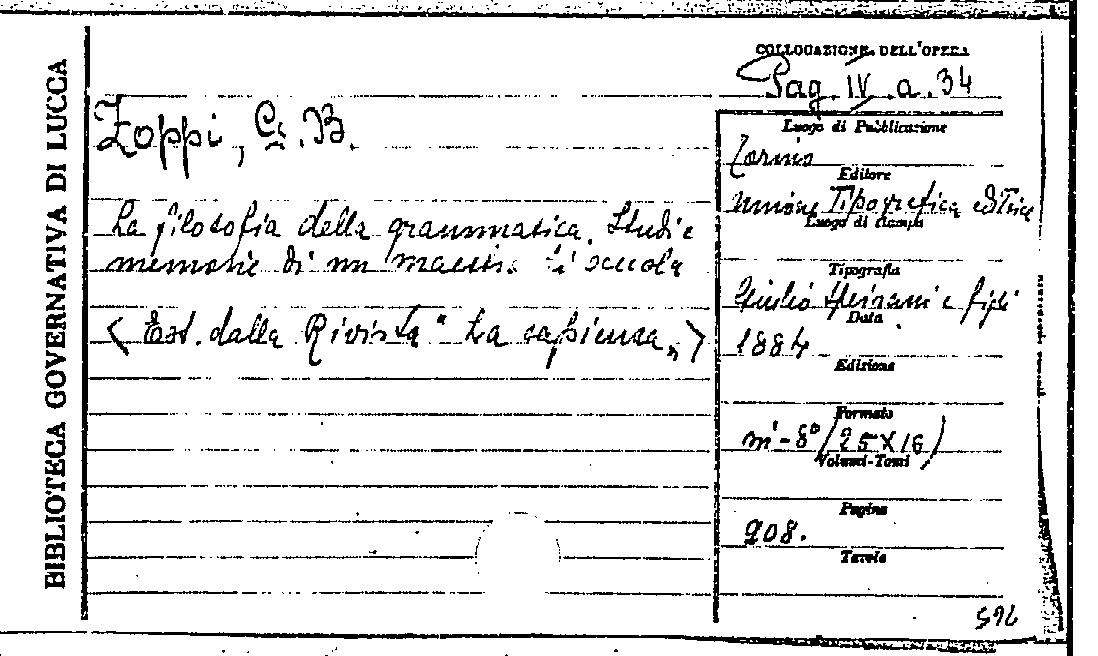 BIBLIOTECA GOVERNATIVA DI LUCCA
COLLOCAZIONE DELL'OPERA
Pag. IV. a. 34
Zoppi, G. B.
La filosofia della grammatica. Studi e
memorie di un maestro di scuola
(Est. dalla Rivista "La sapienza")
Luogo di Pubblicazione
Torino
Editore
Unione Tipografica editrice
Luogo di Stampa
Tipografia
Giulio Speirani e figli
Data
1884
Edizione
Formato
in-8° (25X16)
Volumi-Tomi
Pagine
208.
Tavole
592